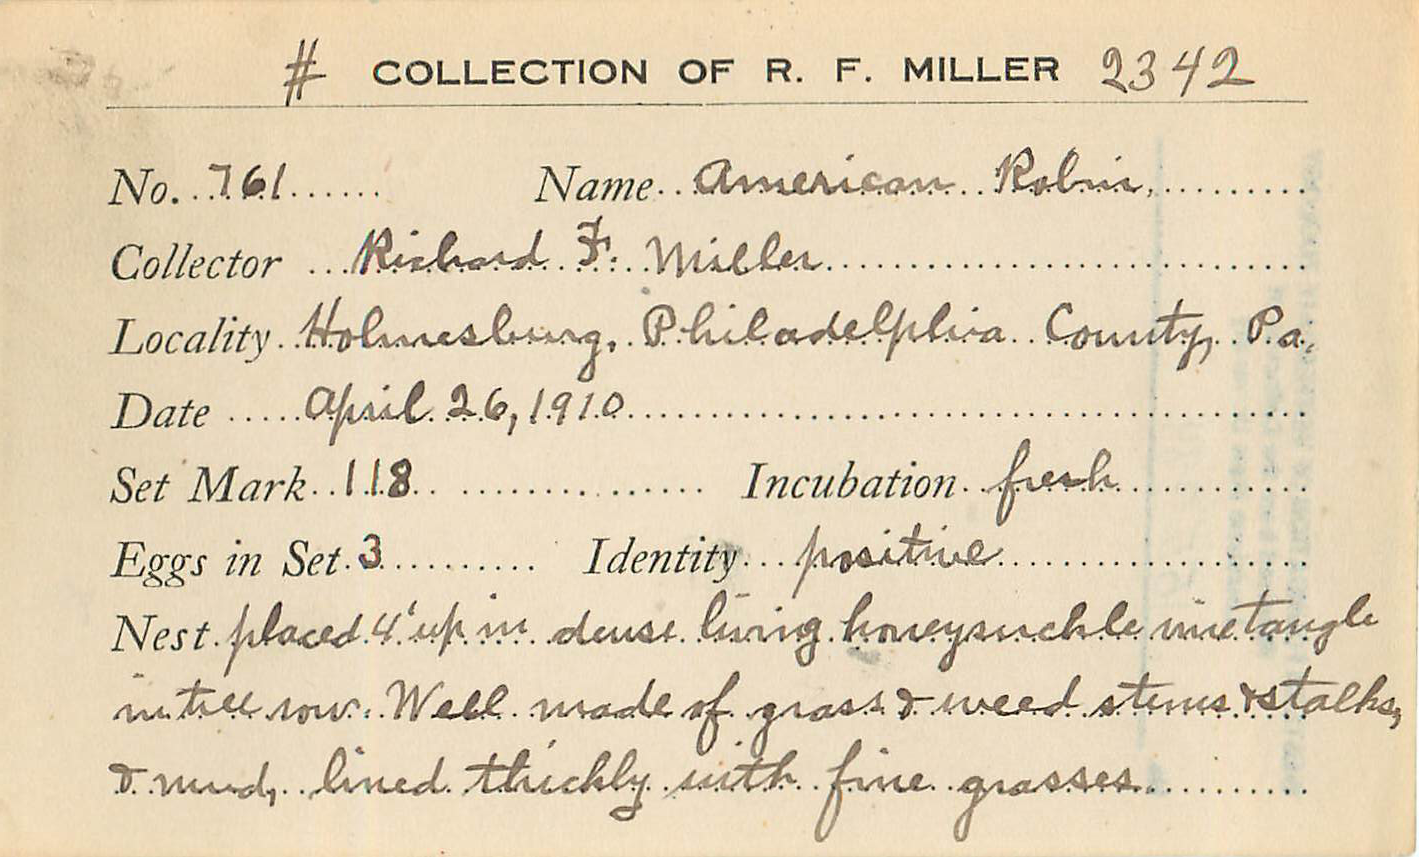 # COLLECTION OF R. F. MILLER 2342
No. 761 Name American Robin,
Collector Richard F. Miller
Locality Holmesburg, Philadelphia County, Pa.
Date April 26, 1910
Set Mark 118 Incubation fresh
Eggs in Set 3 Identity positive
Nest placed 4' up in dense living honeysuckle vine tangle
in tree row. Well made of grass & weed stems & stalks,
& mud, lined thickly with fine grasses.